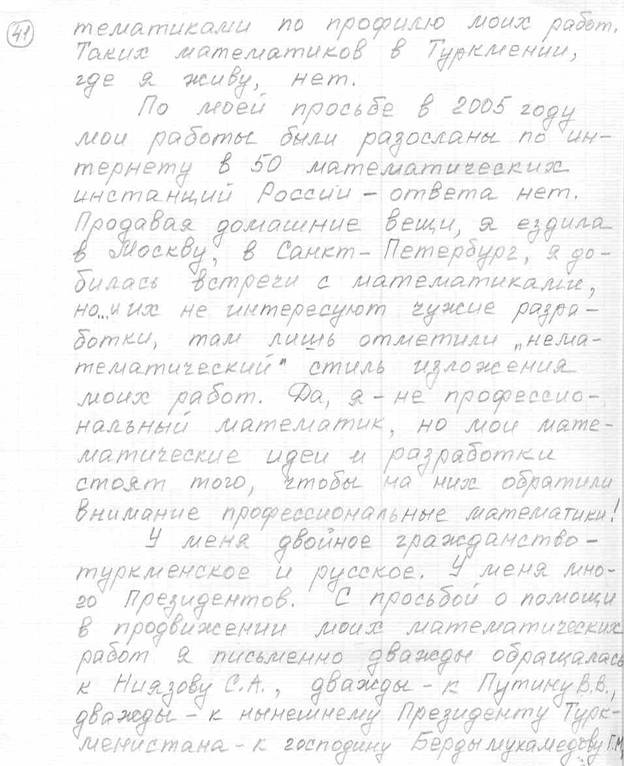 41
тематиками по профилю моих работ.
Таких математиков в Туркмении,
где я живу, нет.
По моей просьбе в 2005 году
мои работы были разосланы по ин-
тернету в 50 математических
инстанций России – ответа нет.
Продавая домашние вещи, я ездила
в Москву, в Санкт-Петербург, я до-
билась встречи с математиками,
но... и их не интересуют чужие разра-
ботки, там лишь отметили „нема-
тематический" стиль изложения
моих работ. Да, я – не профессио-
нальный математик, но мои мате-
матические идеи и разработки
стоят того, чтобы на них обратили
внимание профессиональные математики!
У меня двойное гражданство –
туркменское и русское. У меня мно-
го Президентов. С просьбой о помощи
в продвижении моих математических
работ я письменно дважды обращалась
к Ниязову С.А., дважды – к Путину В.В.,
дважды – к нынешнему Президенту Турк-
менистана – к господину Бердымухамедову Г.М.